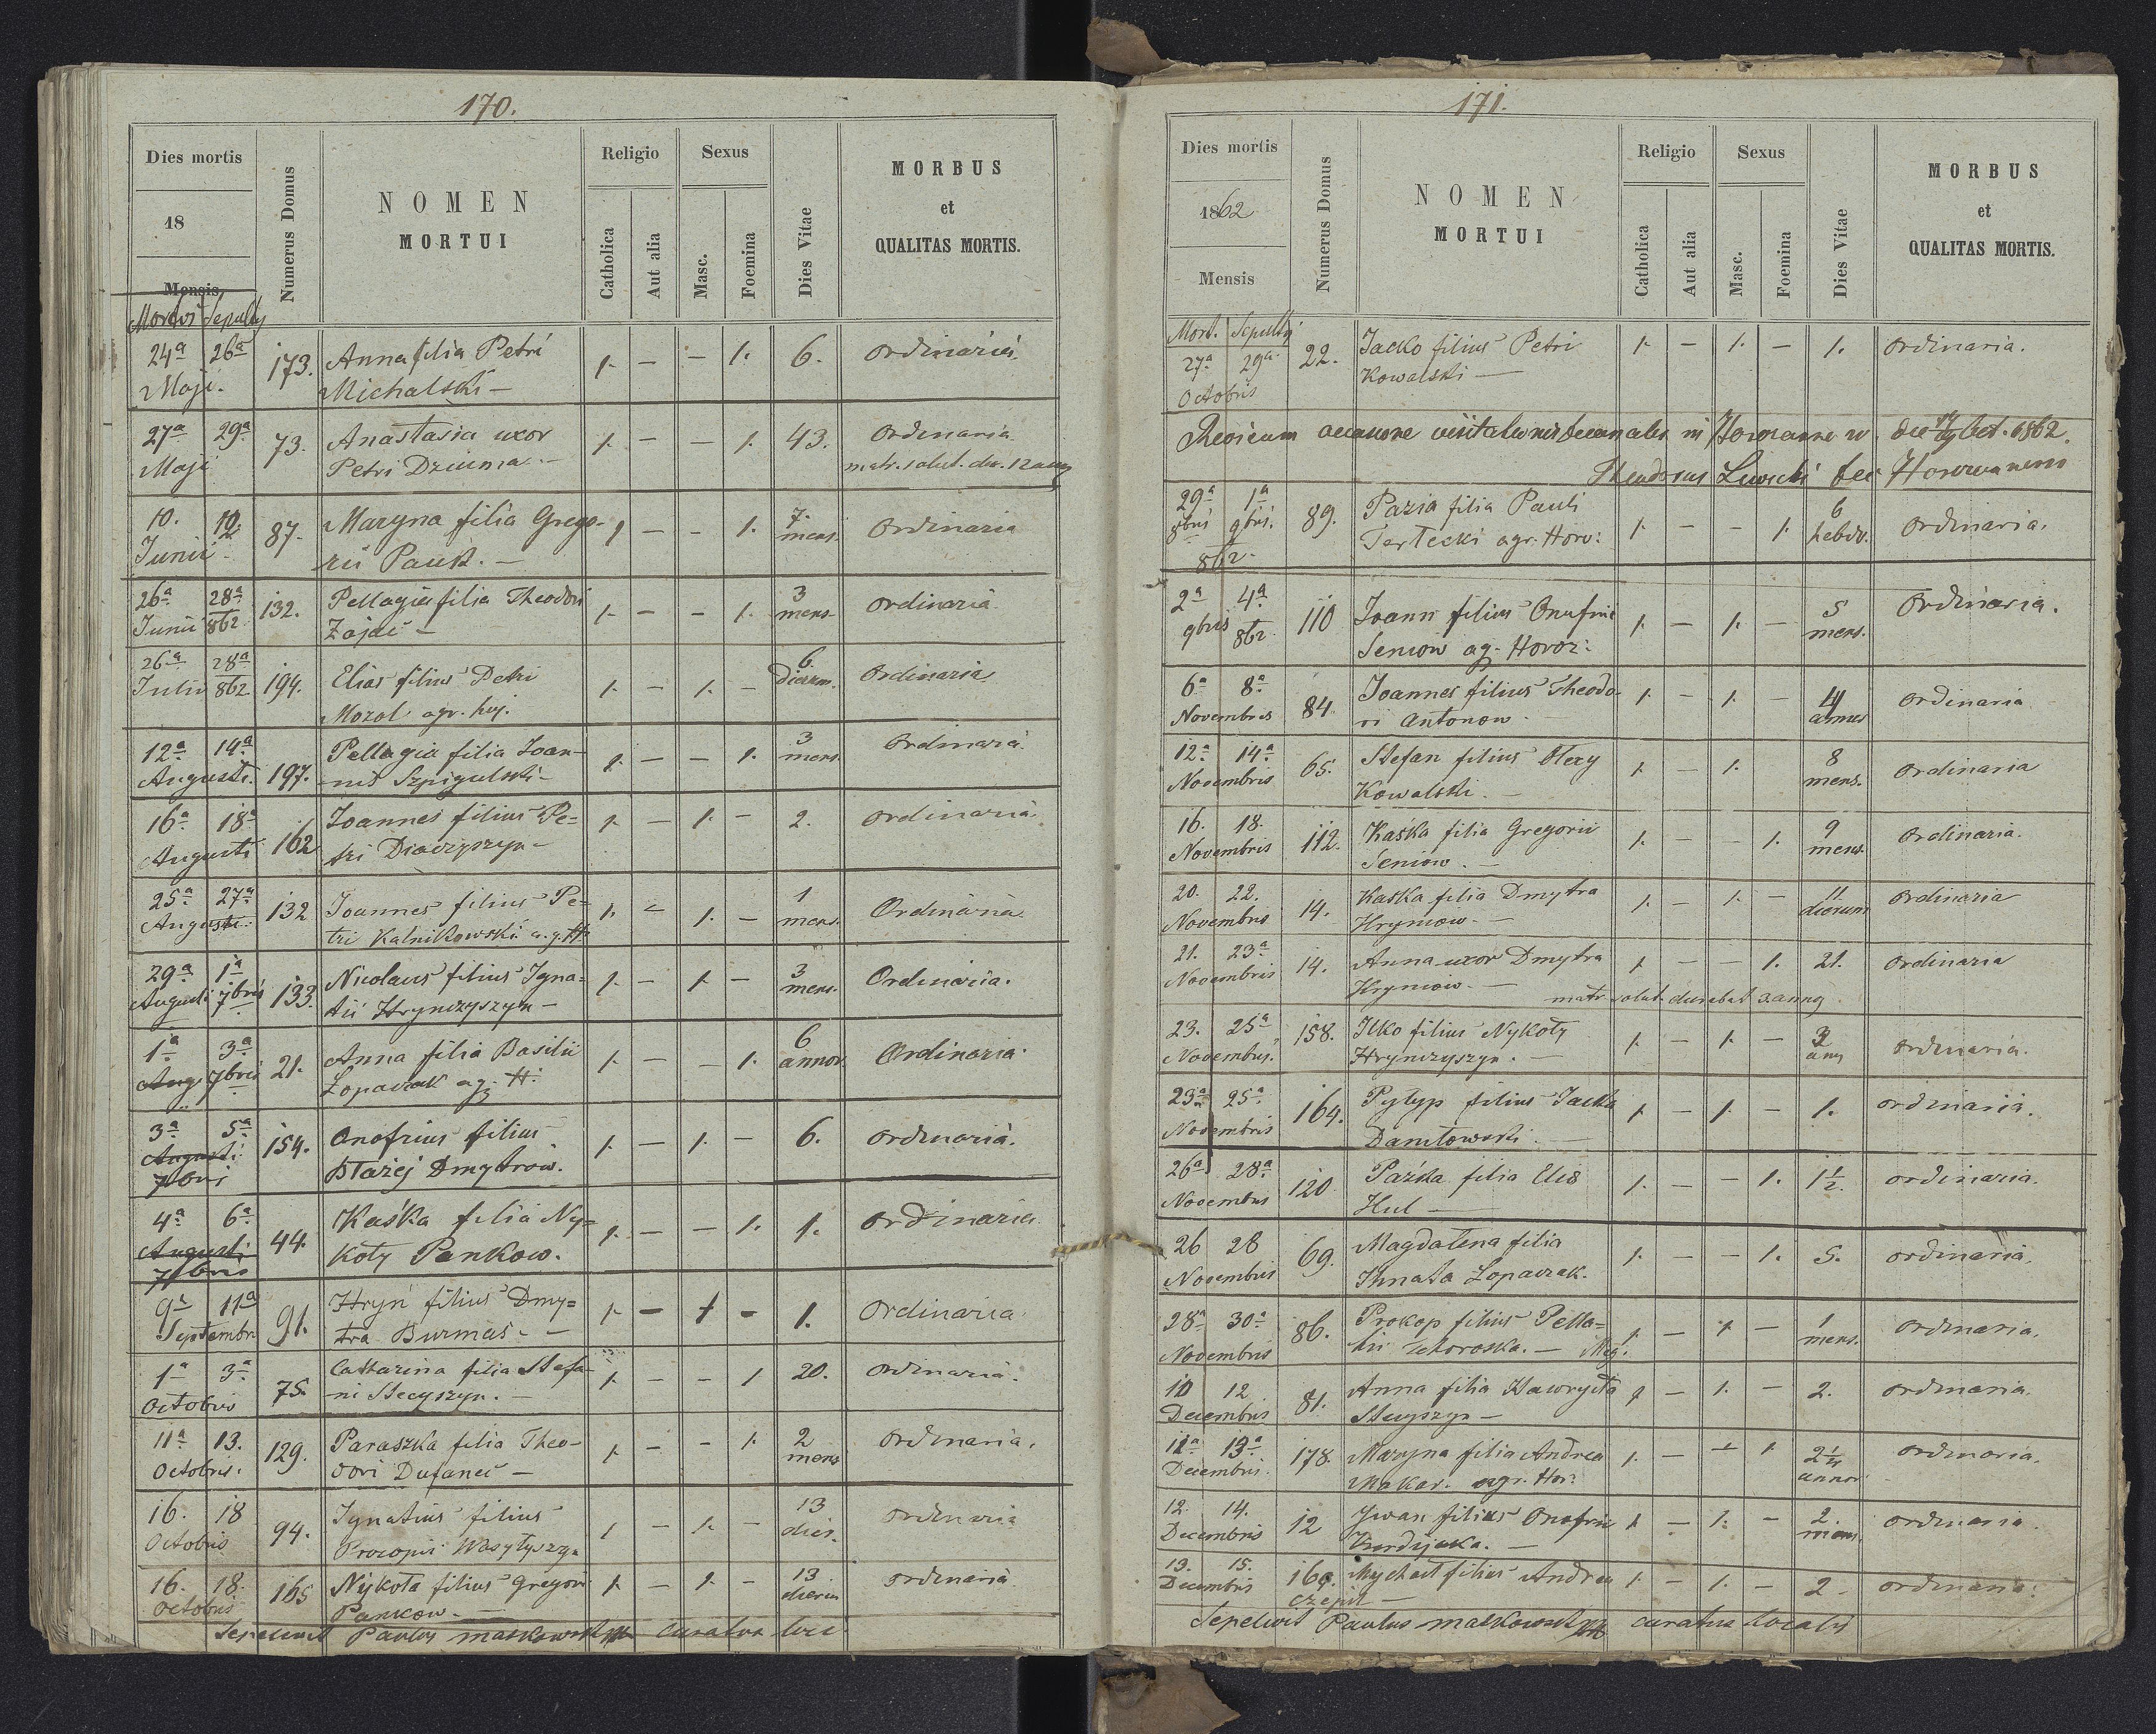 170.
Dies mortis
18
Mensis
Numerus Domus
NOMEN
MORTUI
Religio
Catholica
Aut alia
Sexus
Masc.
Foemina
Dies Vitae
MORBUS
et
QUALITAS MORTIS.
24ª 26ª Maji. 173. Anna filia Petri 1. — — 1. 6. ordinaria
Michalski —
27ª 29ª Maji 73. Anastasia uxor 1. — — 1. 43. Ordinaria
Petri Dziuma. — matr. solut. dur. 12 ann
10. 12. Junii 87. Maryna filia Grego- 1. — — 1. 7. mens. Ordinaria
rii Pauk. —
26ª 28ª Junii 862 132. Pellagia filia Theodori 1. — — 1. 3 mens. ordinaria
Zajać —
26ª 28ª Julii 862 194. Elias filius Petri 1. — 1. — 6 dierum. Ordinaria
Mozol agr. huj.
12ª 14ª Augusti. 197. Pellagia filia Joan- 1. — — 1. 3 mens. Ordinaria
nis Szpigulski —
16ª 18ª Augusti 162 Joannes filius Pe= 1. — 1. — 2. ordinaria
tri Diaczyszyn —
25ª 27ª Augusti 132 Joannes filius Pe= 1. — 1. — 1 mens. Ordinaria
tri Kalnikowski a.g.H
29ª Augusti 1ª 7bris 133. Nicolaus filius Igna= 1. — 1. — 3 mens. Ordinaria.
tii Hrynczyszyn —
1ª 3ª Aug 7bris 21. Anna filia Basilii 1. — — 1. 6 annor. Ordinaria.
Łopaczak ag. H.
3ª 5ª Augusti 7bris 154. Onofrius filius 1. — 1. — 6. ordinaria.
Błażej Dmytrow.
4ª 6ª Augusti 7bris 44. Kaśka filia Ny= 1. — — 1. 1. ordinaria
koły Pankow.
9ª 11ª Septembr 91. Hryń filius Dmy= 1. — 1 — 1. Ordinaria
tra Burmas. —
1ª 3ª Octobris 75. Catharina filia Stefa- 1. — — 1 20. ordinaria.
ni Stecyszyn. —
11ª 13. Octobris. 129. Paraszka filia Theo- 1. — — 1. 2 mens ordinaria.
dori Dufanei —
16. 18 Octobris 94. Ignatius filius 1 — 1. — 13 dies. ordinaria
Procopii Wasyłyszyn
16. 18. Octobris 165 Nykoła filius Gregori 1. — 1. — 13 dierum ordinaria
Pankow. —
Sepelivit Paulus Maskowski curatus loci
171.
Dies mortis
1862
Mensis
Numerus Domus
NOMEN
MORTUI
Religio
Catholica
Aut alia
Sexus
Masc.
Foemina
Dies Vitae
MORBUS
et
QUALITAS MORTIS.
Mort. Sepulti
27ª 29ª Octobris 22. Jacko filius Petri 1. — 1. — 1. ordinaria.
Kowalski —
29ª 8bris 1ª 9bri. 862. 89. Pazia filia Pauli 1. — — 1. 6 hebdo. ordinaria.
Terlecki agr. Horo:
2ª 4ª 9bris 862. 110 Joann filius Onufrii 1. — 1. — 5 mens. Ordinaria.
Seniow ag. Horoz:
6ª 8ª Novembris 84. Joannes filius Theodo- 1. — 1. 4 annes ordinaria
ri Antonow. —
12ª 14ª Novembris 65. Stefan filius Olexy 1. — 1. 8 mens. ordinaria
Kowalski. —
16. 18. Novembris 112. Kaśka filia Gregorii 1. — 1. 9 mens. ordinaria.
Seniow. —
20. 22. Novembris 14. Kaśka filia Dmytra 1. — 1. — 11 dierum ordinaria
Hryniow. —
21. 23ª Novembris 14. Anna uxor Dmytra 1. — — 1. 21. ordinaria
Hryniow. — matr. solut. durabat 3. anno.
23. 25ª Novembris. 158. Ilko filius Nykoły 1. — 1. — 3 ann ordinaria.
Hrynczyszyn. —
23ª 25ª Novembris 164. Pyłyp filius Jacka 1. — 1. — 1. ordinaria.
Daniłowski. —
26ª 28ª Novembris 120 Paźka filia Elis 1. — — 1. 1½. ordinaria.
Hul —
26 28 Novembris 69. Magdalena filia 1. — — 1. 5. ordinaria.
Ihnata Łopaczak.
28ª 30ª Novembris 86. Prokop filius Pella= 1. — 1. — 1 mens. ordinaria.
10 12 Decembris 81. Anna filia Hawryła 1. — 1. — 2. ordinaria.
Stecyszyn —
11ª 13ª Decembris. 178. Maryna filia Andrea 1. — — 1. 2¼ annor ordinaria.
Makar. agr. Hor:
12. 14. Decembris 12 Iwan filius Onofrii 1. — 1. — 2. mens. ordinaria.
13. 15. Decembris 169. Mychaił filius Andrea 1. — 1. — 2 ordinaria.
Czepil —
Sepelivit Paulus Maskowski curatus localis